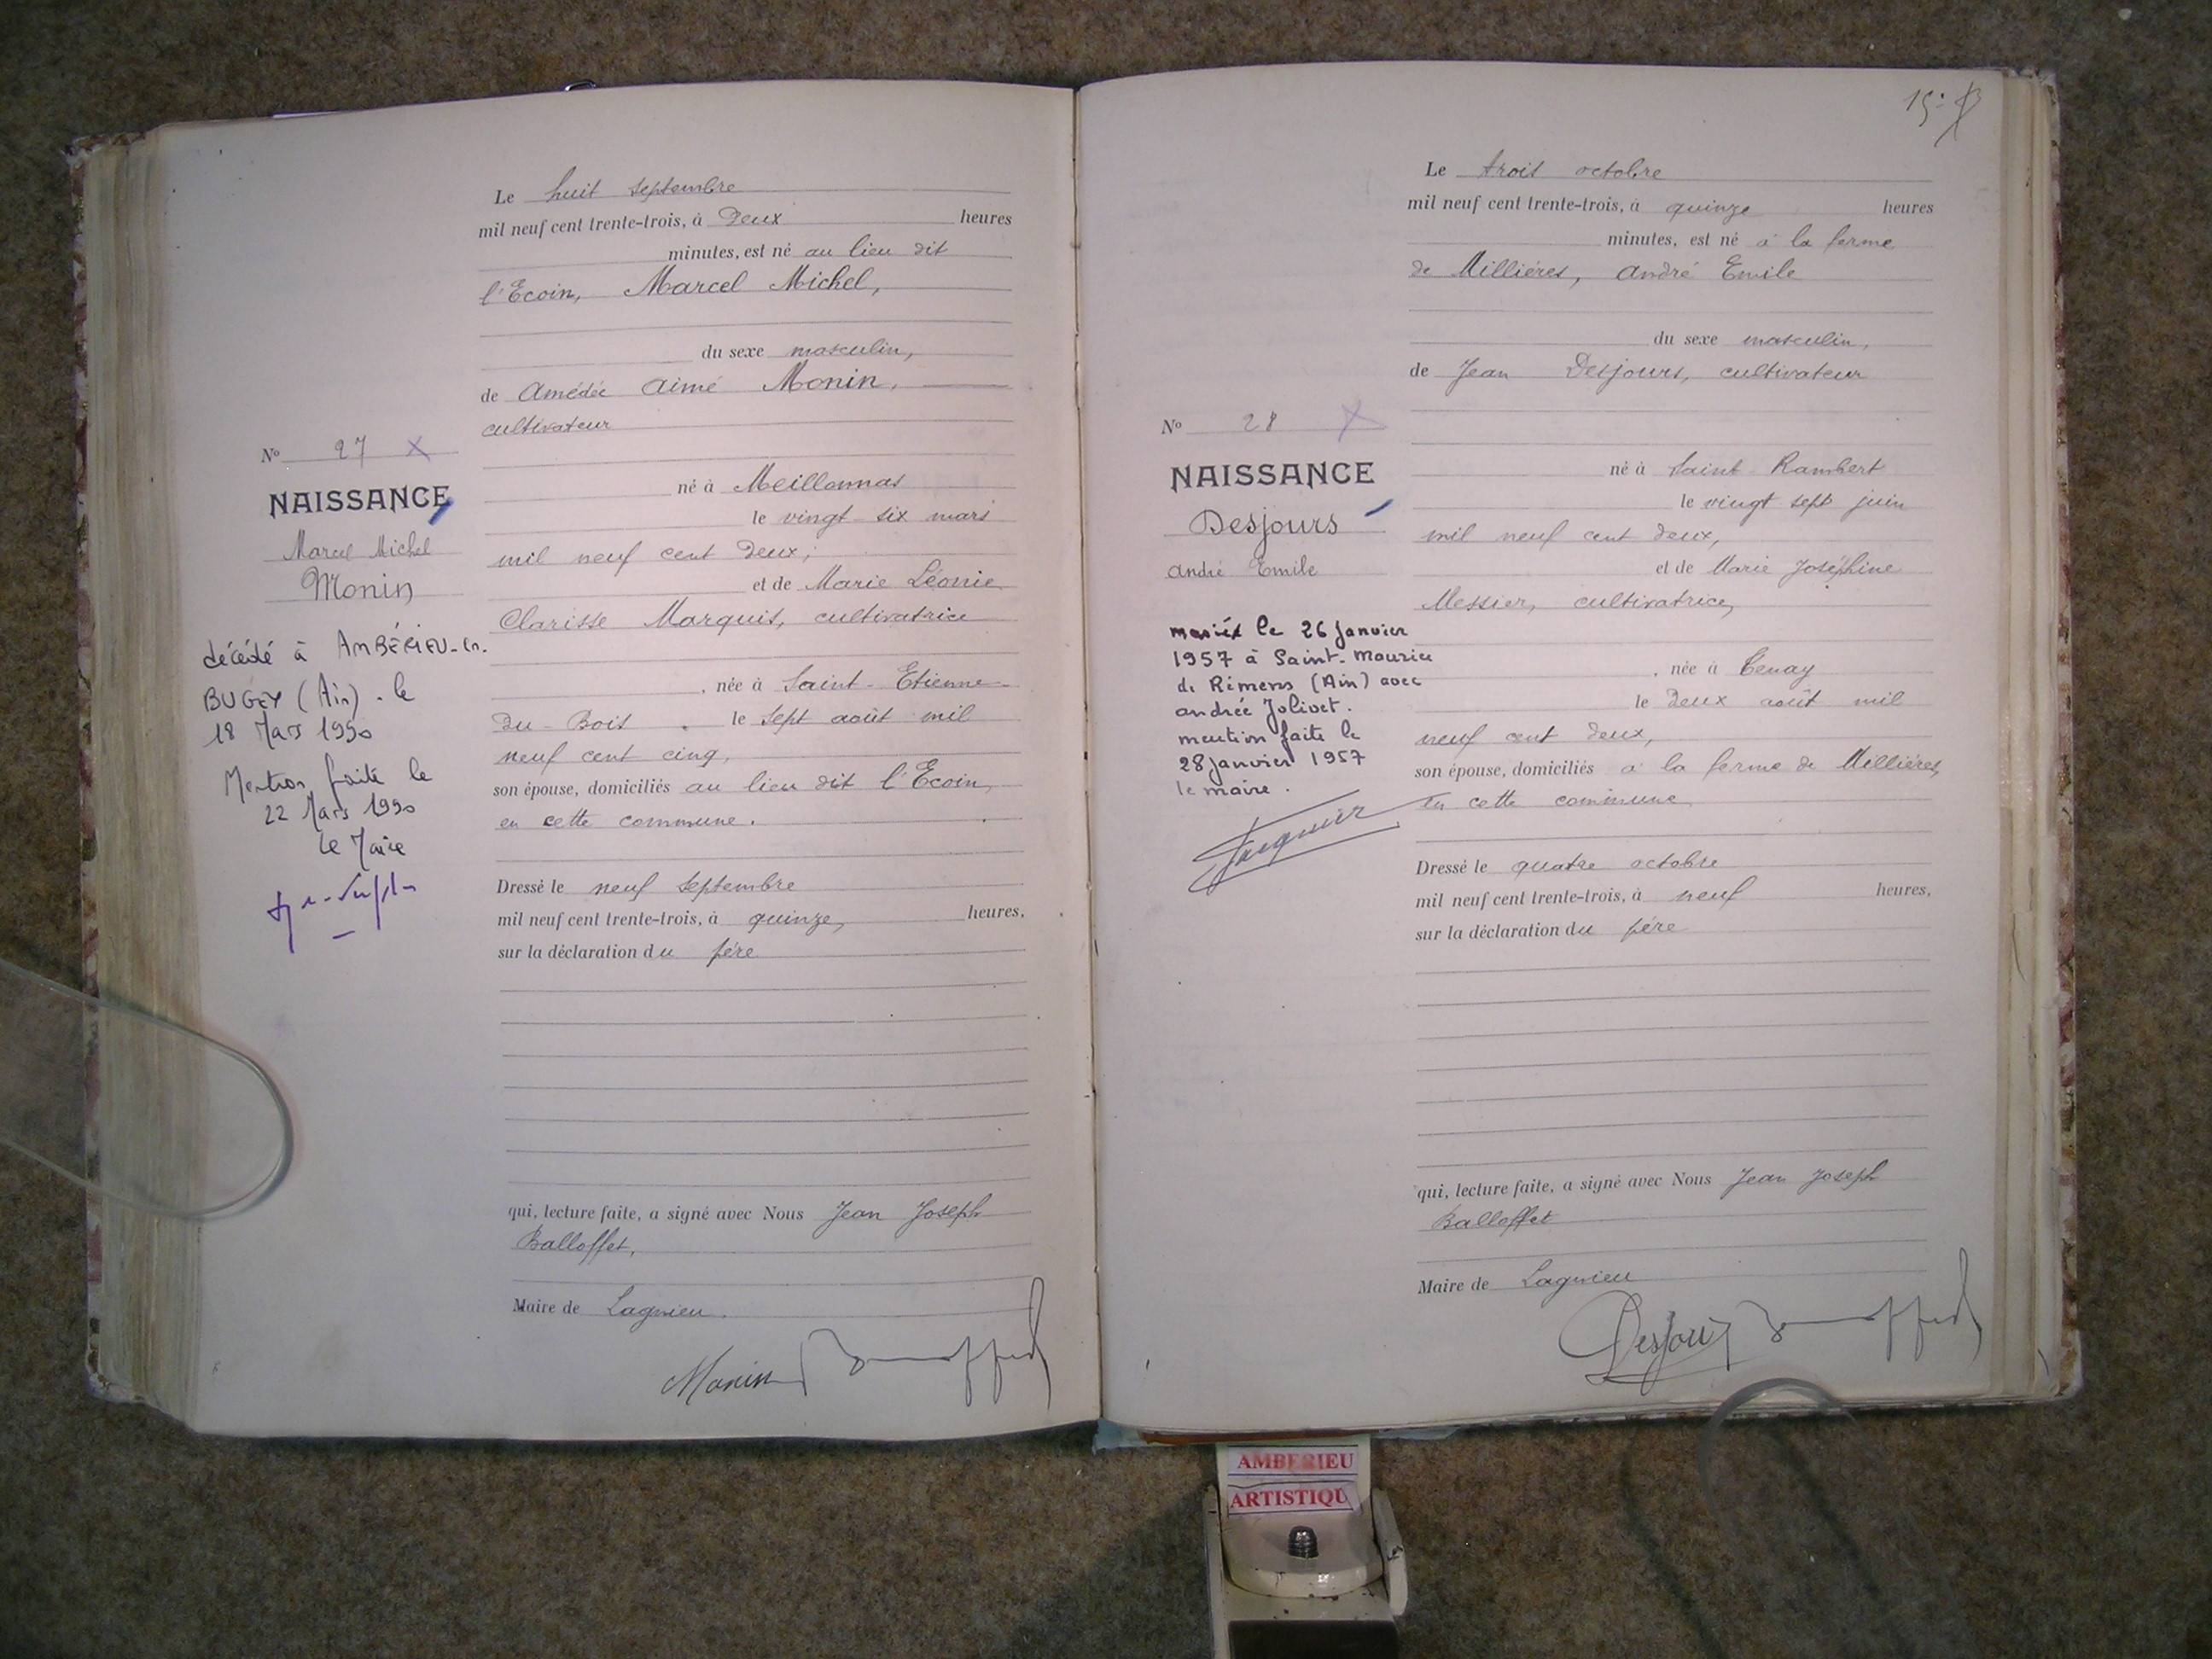 Le huit septembre
mil neuf cent trente-trois, à Deux heures
minutes, est né au lieu dit
l'Ecoin, Marcel Michel,
du sexe masculin,
de Amédée Aimé Monin,
cultivateur
né à Meillonnas
le vingt six mars
mil neuf cent deux;
et de Marie Léonie
Clarisse Marquis, cultivatrice
, née à Saint-Etienne-
du-Bois. le sept août mil
neuf cent cinq,
son épouse, domiciliés au lieu dit l'Ecoin,
en cette commune.
Dressé le neuf septembre
mil neuf cent trente-trois, à quinze, heures,
sur la déclaration du père
qui, lecture faite, a signé avec Nous Jean Joseph
Balloffet,
Maire de Lagnieu.
Monin
No 27 X
NAISSANCE
Marcel Michel
Monin
décédé à AMBÉRIEU-en-
BUGEY (Ain) - le
18 Mars 1990
Mention faite le
22 Mars 1990
Le Maire
15
Le trois octobre
mil neuf cent trente-trois, à quinze heures
minutes, est né à la ferme
de Millières, André Emile
du sexe masculin,
de Jean Desjours, cultivateur
né à Saint-Rambert
le vingt sept juin
mil neuf cent deux,
et de Marie Joséphine
Messier, cultivatrice,
, née à Tenay
le deux août mil
neuf cent deux,
son épouse, domiciliés à la ferme de Millières,
en cette commune
Dressé le quatre octobre
mil neuf cent trente-trois, à neuf heures,
sur la déclaration du père
qui, lecture faite, a signé avec Nous Jean Joseph
Balloffet
Maire de Lagnieu
Desjours
No 28 X
NAISSANCE
Desjours
André Emile
marié le 26 Janvier
1957 à Saint-Maurice
de Rémens (Ain) avec
andrée Jolivet.
mention faite le
28 janvier 1957
le maire.
AMBERIEU
ARTISTIQU